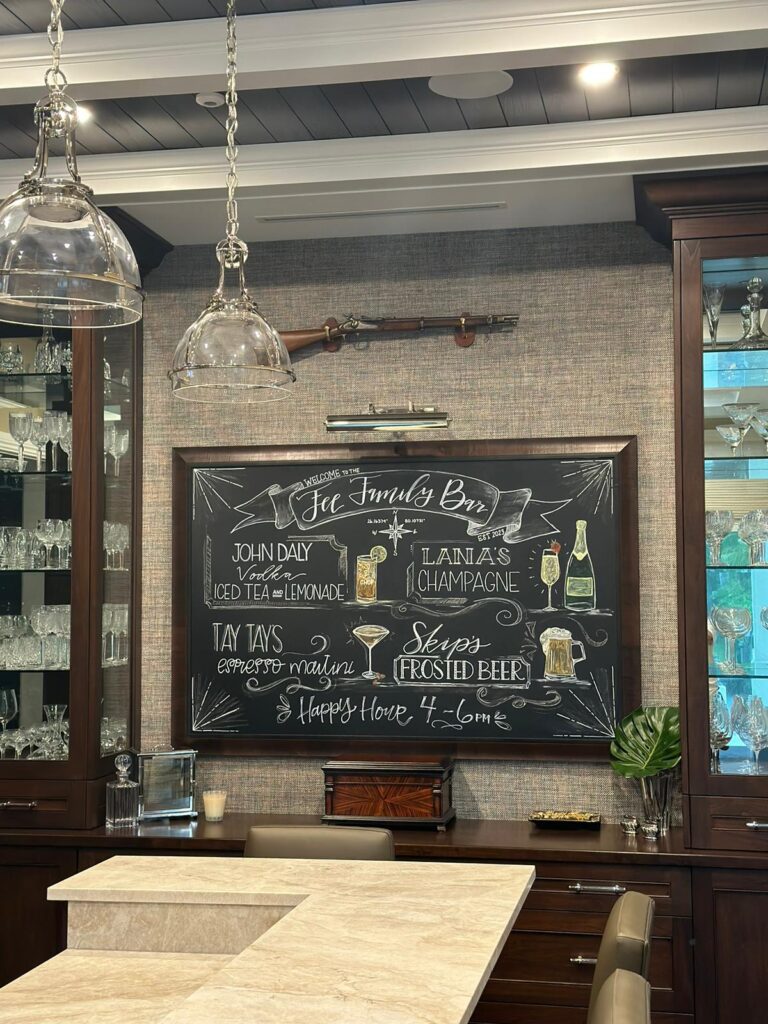 WELCOME TO THE
Fee Family Bar
EST 2023
JOHN DALY
Vodka
ICED TEA AND LEMONADE
LANA'S
CHAMPAGNE
TAY TAY'S
espresso martini
Skip's
FROSTED BEER
Happy Hour 4-6PM